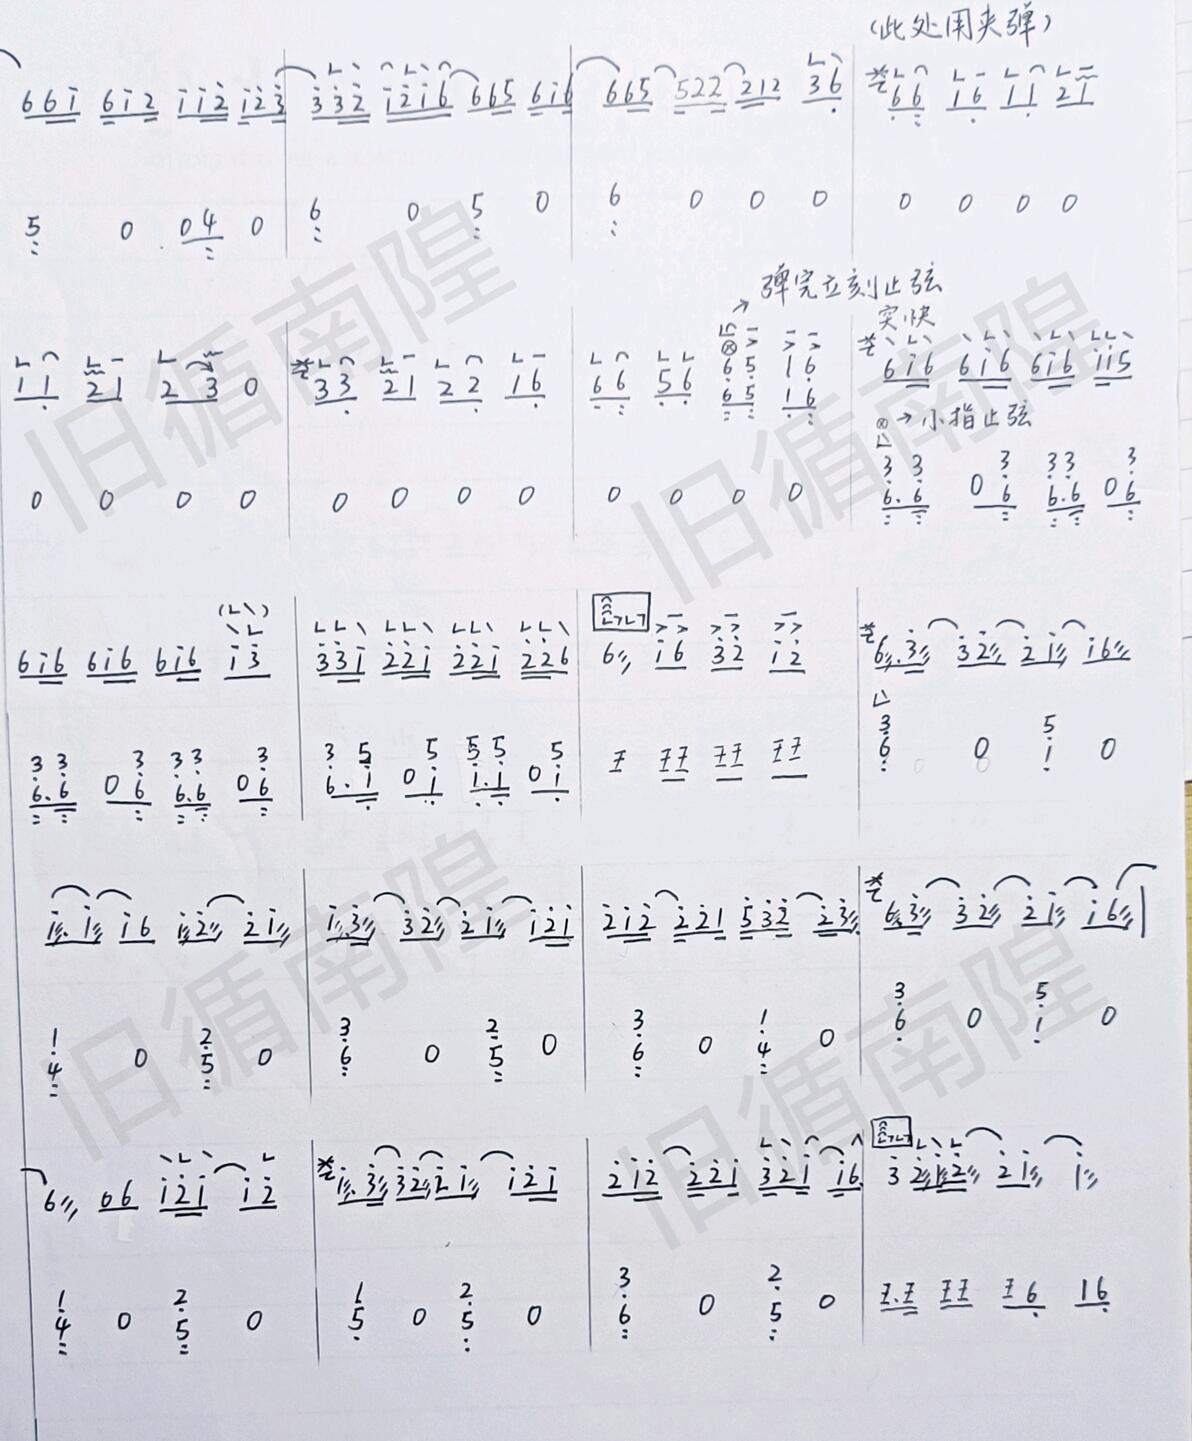 (此处用夹弹)
661 612 112 123 332 1216 665 616 665 522 212 36 66 16 11 21
5 0 04 0 6 0 5 0 6 0 0 0 0 0 0 0
弹完立刻止弦
突快
11 21 2 3 0 33 21 22 16 66 56 65 16 616 616 616 115
65 16
小指止弦
3 3 3 33 3
0 0 0 0 0 0 0 0 0 0 0 0 6.6 06 6.6 06
616 616 616 13 331 221 221 226 6 16 32 12 6.3 32 21 16
3 3 3 33 3 3 5 5 55 5 3 5
6.6 06 6.6 06 6.1 01 1.1 01 6 0 1 0
1.1 16 12 21 1.3 32 21 121 212 221 532 23 6.3 32 21 16
1 2 3 2 3 1 3 5
4 0 5 0 6 0 5 0 6 0 4 0 6 0 1 0
6 06 121 12 1.3 32 21 121 212 221 321 16 3 212 21 1
1 2 1 2 3 2
4 0 5 0 5 0 5 0 6 0 5 0 6 16
旧循南隍
旧循南隍
旧循南隍
旧循南隍